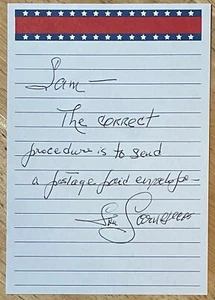 Sam —
The correct
procedure is to send
a postage paid envelope —